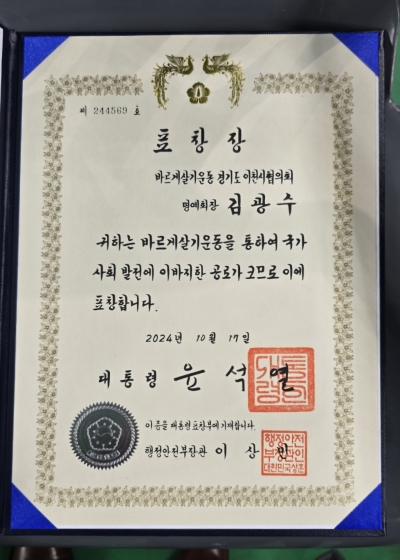 제 244569 호
표창장
바르게살기운동 경기도 이천시협의회
명예회장 김광수
귀하는 바르게살기운동을 통하여 국가
사회 발전에 이바지한 공로가 크므로 이에
표창합니다.
2024년 10월 17일
대통령 윤석열
이 증을 대통령표창부에 기재합니다.
행정안전부장관 이상민